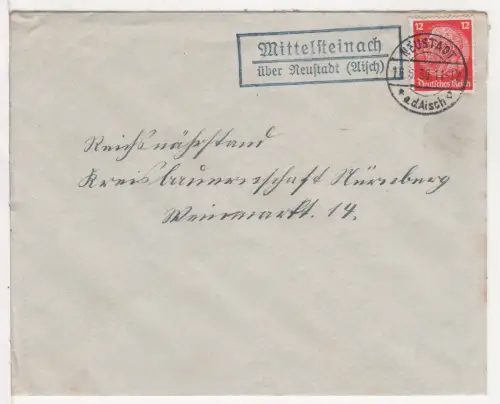 Mittelsteinach
über Neustadt (Aisch)
12 12
Deutsches Reich
NEUSTADT
* a.d.Aisch
Reichsnährstand
Kreisbauernschaft Nürnberg
Weinmarkt. 14.